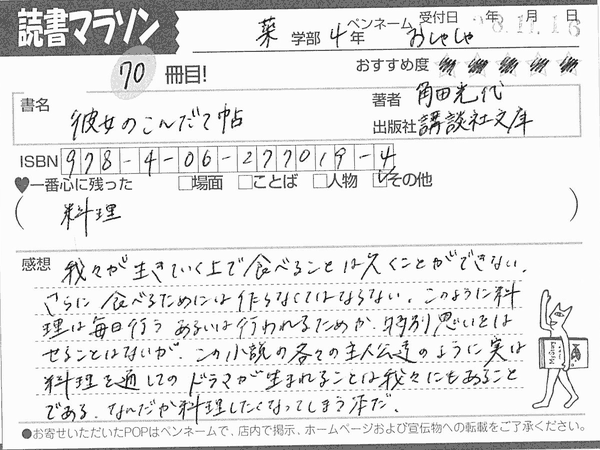 読書マラソン
薬 学部 4年 ペンネーム おしゃしゃ 受付日 年 月 日
8.11.16
70 冊目!
おすすめ度
書名 彼女のこんだて帖
著者 角田光代
出版社 講談社文庫
ISBN 978-4-06-277019-4
♥一番心に残った □場面 □ことば □人物 ☑その他
(料理)
感想 我々が生きていく上で食べることは欠くことができない。
さらに食べるためには作らなくてはならない。このように料
理は毎日行うあるいは行われるためか、特別思いをは
せることはないが、この小説の各々の主人公達のように実は
料理を通してのドラマが生まれることは我々にもあること
である。なんだか料理したくなってしまう本だ。
●お寄せいただいたPOPはペンネームで、店内で掲示、ホームページおよび宣伝物への転載をご了承ください。